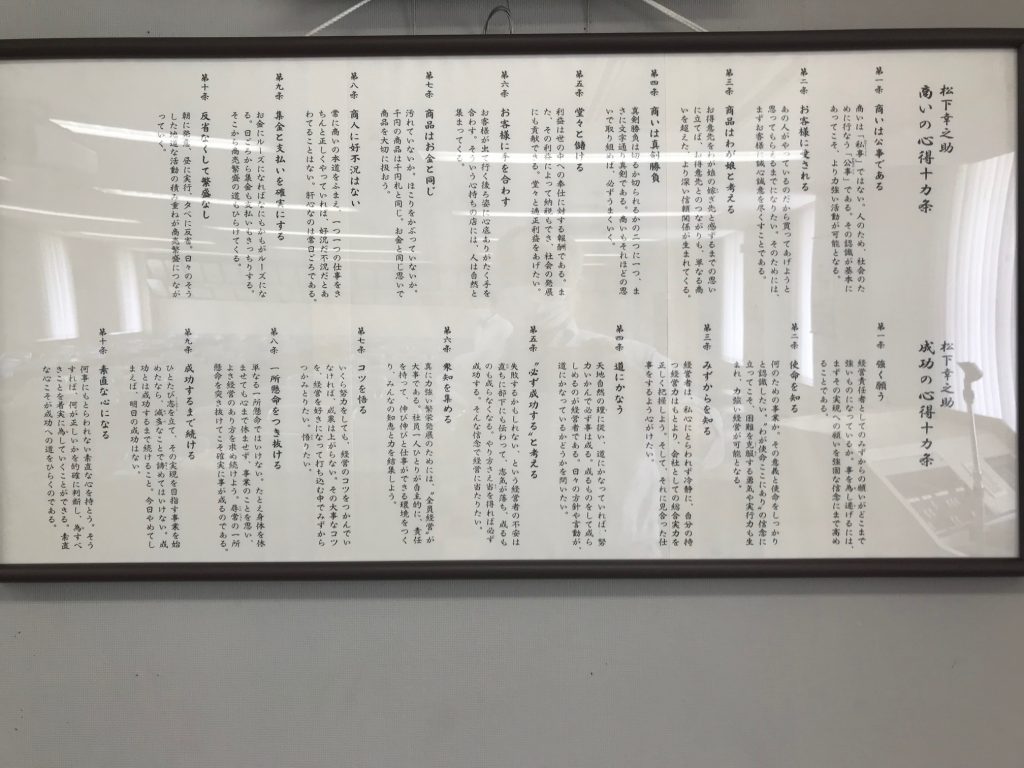 松下幸之助
商いの心得十カ条
第一条 商いは公事である
商いは「私事」ではない。人のため、社会のた
めに行なう「公事」である。その認識が基本に
あってこそ、より力強い活動が可能となる。
第二条 お客様に愛される
あの人がやっているのだから買ってあげようと
思ってもらえるまでになりたい。そのためには、
まずお客様に誠心誠意を尽くすことである。
第三条 商品はわが娘と考える
お得意先をわが娘の嫁ぎ先と感ずるまでの思い
に立てば、お得意先とのつながりも、単なる商
いを超えた、より深い信頼関係が生まれてくる。
第四条 商いは真剣勝負
真剣勝負は切るか切られるかの二つに一つ、ま
さに文字通り真剣である。商いもそれほどの思
いで取り組めば、必ずうまくいく。
第五条 堂々と儲ける
利益は世の中への奉仕に対する報酬である。ま
た、その利益によって納税もでき、社会の発展
にも貢献できる。堂々と適正利益をあげたい。
第六条 お客様に手を合わす
お客様が出て行く後ろ姿に心底ありがたく手を
合わす。そういう心持ちの店には、人は自然と
集まってくる。
第七条 商品はお金と同じ
汚れていないか、ほこりをかぶっていないか。
千円の商品は千円札と同じ。お金と同じ思いで
商品を大切に扱おう。
第八条 商人に好不況はない
常に商いの本道をふまえ、一つ一つの仕事をき
ちんと正しくやっていれば、好況だ不況だとあ
わてることはない。肝心なのは常日ごろである。
第九条 集金と支払いを確実にする
お金にルーズになればなにもかもがルーズにな
る。日ごろから集金も支払いもきっちりする。
そこから商売繁盛の道もひらけてくる。
第十条 反省なくして繁盛なし
朝に発意、昼に実行、夕べに反省。日々のそう
した地道な活動の積み重ねが商売繁盛につなが
っていく。
松下幸之助
成功の心得十カ条
第一条 強く願う
経営責任者としてのみずからの願いがどこまで
強いものになっているか。事を為し遂げるには、
まずその実現への願いを強固な信念にまで高め
ることである。
第二条 使命を知る
何のための事業か。その意義と使命をしっかり
と認識したい。〝わが使命ここにあり〟の信念に
立ってこそ、困難を克服する勇気や実行力も生
まれ、力強い経営が可能となる。
第三条 みずからを知る
経営者は、私心にとらわれず冷静に、自分の持
つ経営力はもとより、会社としての総合実力を
正しく把握しよう。そして、それに見合った仕
事をするよう心がけたい。
第四条 道にかなう
天地自然の理に従い、道にかなっていれば、努
力いかんで必ず事は成る。成るものをして成ら
しめるのが経営者である。日々の方針や言動が、
道にかなっているかどうかを問いたい。
第五条 〝必ず成功する〟と考える
失敗するかもしれない、という経営者の不安は
直ちに部下にも伝わって、志気が落ち、成るも
のも成らなくなる。やり方さえ当を得れば必ず
成功する。そんな信念で経営に当たりたい。
第六条 衆知を集める
真に力強い繁栄発展のためには、〝全員経営〟が
大事である。社員一人ひとりが自主的に、責任
を持って、伸び伸びと仕事ができる環境をつく
り、みんなの知恵と力を結集しよう。
第七条 コツを悟る
いくら努力をしても、経営のコツをつかんでい
なければ、成果は上がらない。その大事なコツ
を、経営を好きになって打ち込む中でみずから
つかみとりたい、悟りたい。
第八条 一所懸命をつき抜ける
単なる一所懸命ではいけない。たとえ身体を休
ませても心まで休ませず、事業のことを思い、
よき経営のあり方を求め続けよう。尋常の一所
懸命を突き抜けてこそ確実に事が成るのである。
第九条 成功するまで続ける
ひとたび志を立て、その実現を目指す事業を始
めたなら、滅多なことで諦めてはいけない。成
功とは成功するまで続けること。今日やめてし
まえば、明日の成功はない。
第十条 素直な心になる
何事にもとらわれない素直な心を持とう。そう
すれば、何が正しいかを的確に判断し、為すべ
きことを着実に為していくことができる。素直
な心こそが成功への道をひらくのである。